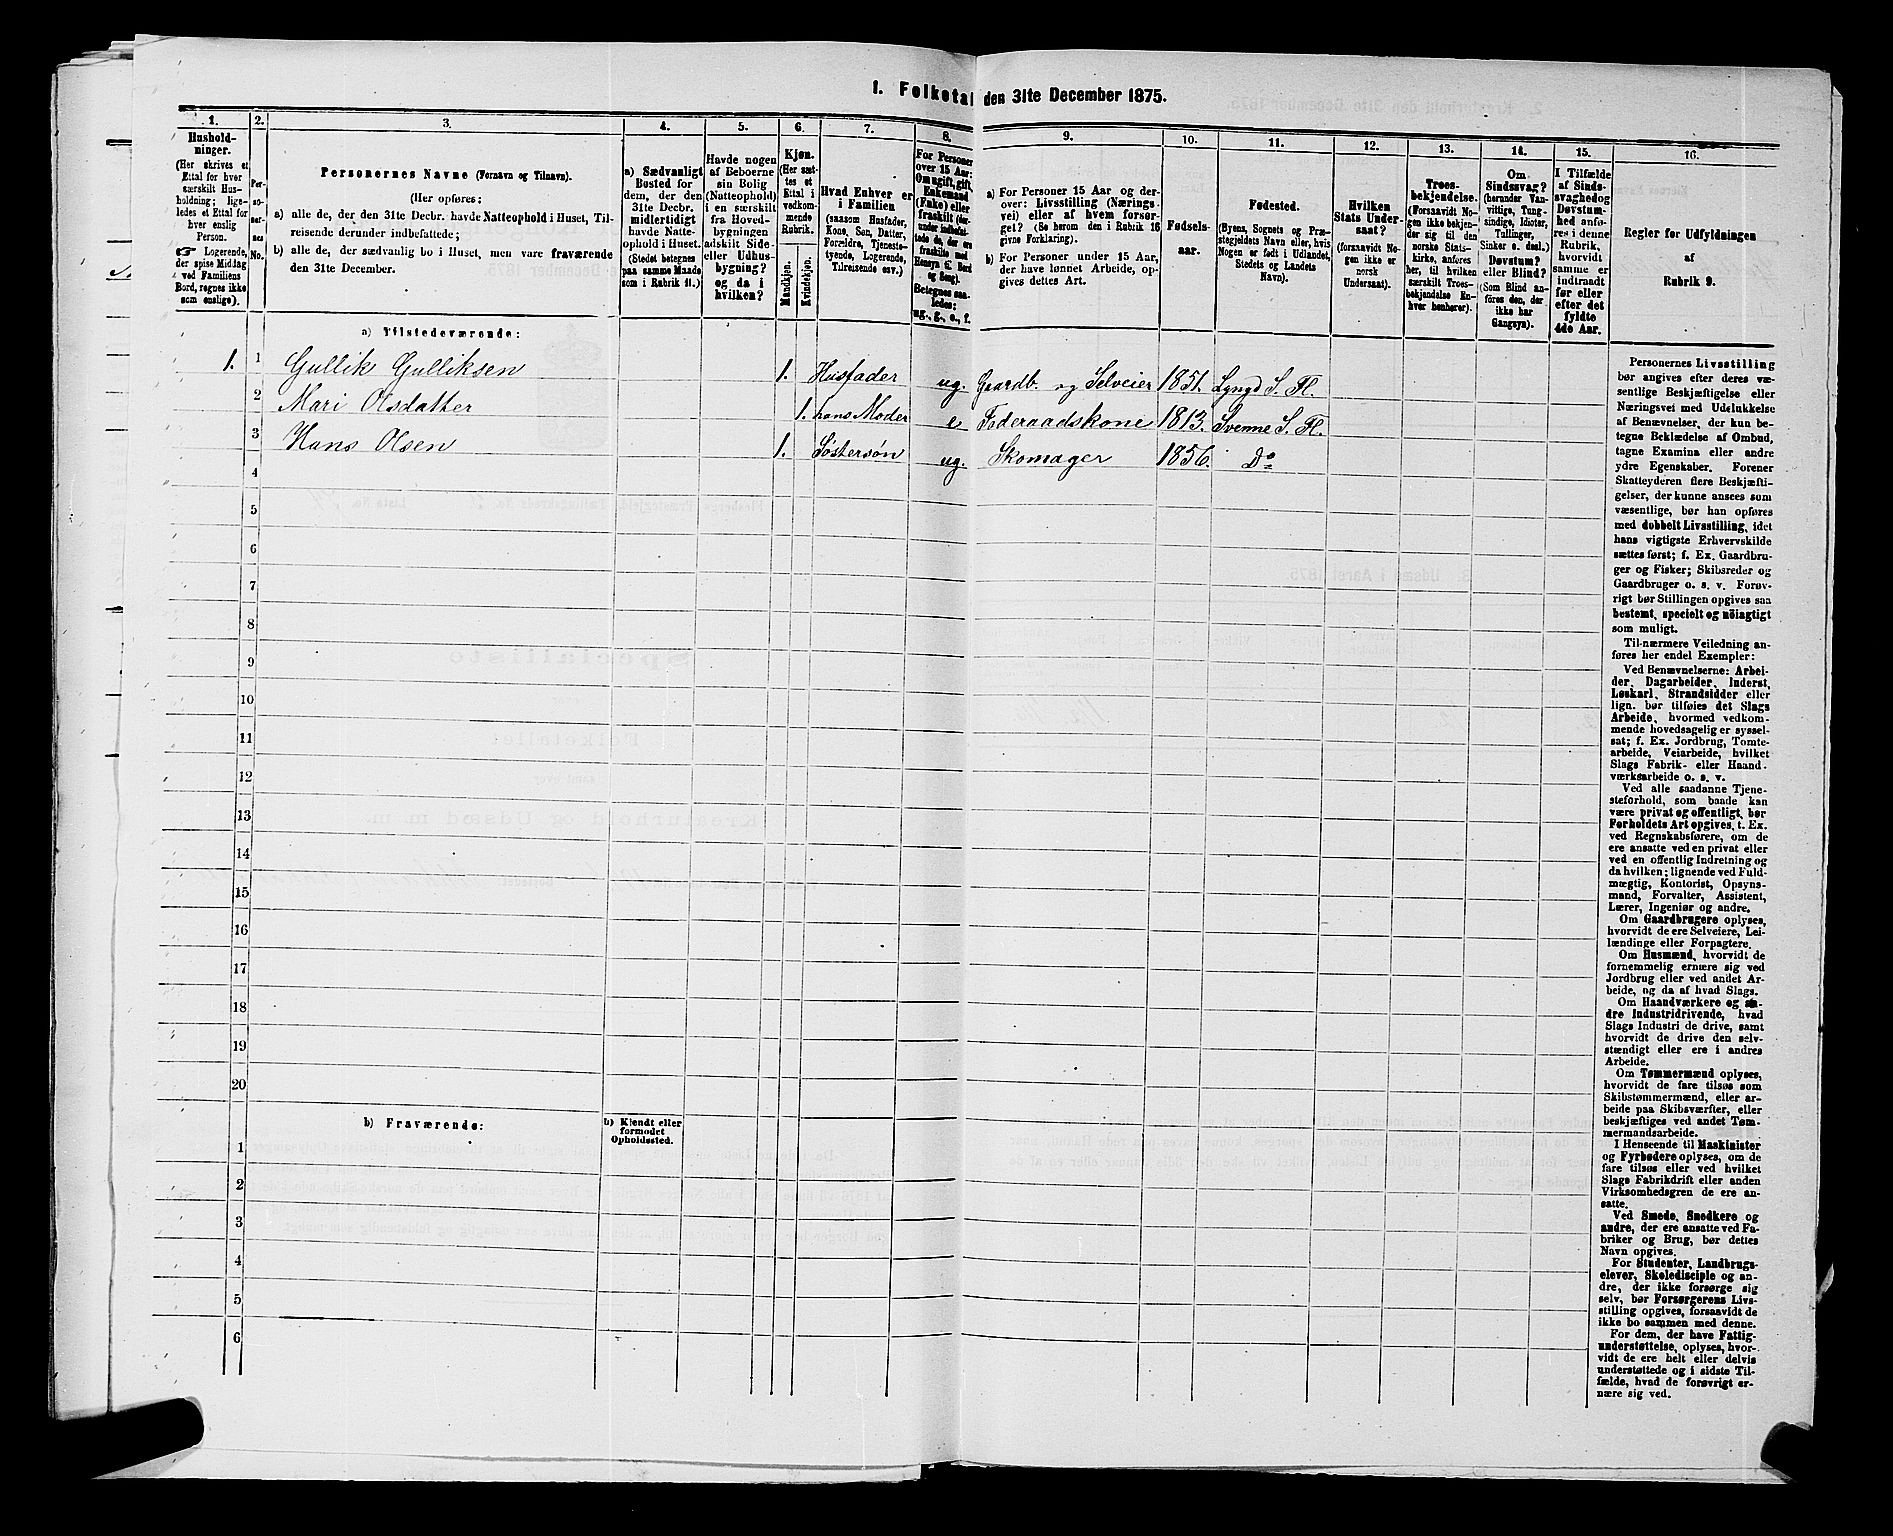 1. Folketal den 31te December 1875.
1. 2. 3. 4. 5. 6. 7. 8. 9. 10. 11. 12. 13. 14. 15. 16.
Hushold-
ninger.
(Her skrives et
Ettal for hver
særskilt Hus-
holdning; lige-
ledes et Ettal for
hver enslig
Person.
☞ Logerende,
der spise Middag
ved Familiens
Bord, regnes ikke
som enslige).
Per-
so-
ner-
nes
No.
Personernes Navne (Fornavn og Tilnavn).
(Her opføres:
a) alle de, der den 31te Decbr. havde Natteophold i Huset, Til-
reisende derunder indbefattede;
b) alle de, der sædvanlig bo i Huset, men vare fraværende
den 31te December.
a) Sædvanligt
Bosted for
dem, der den
31te Decbr.
midlertidigt
havde Natte-
ophold i Huset.
(Stedet betegnes
paa samme Maade
som i Rubrik 11.)
Havde nogen
af Beboerne
sin Bolig
(Natteophold)
i en særskilt
fra Hoved-
bygningen
adskilt Side-
eller Udhus-
bygning?
og da i
hvilken?
Kjøn.
(Her sæt-
tes et
Ettal i
vedkom-
mende
Rubrik.
Mandkjøn.
Kvindekjøn.
Hvad Enhver er
i Familien
(saasom Husfader,
Kone, Søn, Datter,
Forældre, Tjeneste-
tyende, Logerende,
Tilreisende osv.)
For Personer
over 15 Aar:
Om ugift, gift,
Enkemand
(Enke) eller
fraskilt (der-
under indbefat-
tede de, der ere
fraskilte med
Hensyn til Bord
og Seng).
Betegnes saa-
ledes:
ug., g., e., f.
a) For Personer 15 Aar og der-
over: Livsstilling (Nærings-
vei) eller af hvem forsør-
get? (Se herom den i Rubrik 16
givne Forklaring).
b) For Personer under 15 Aar,
der have lønnet Arbeide, op-
gives dettes Art.
Fødsels-
aar.
Fødested.
(Byens, Sognets og Præ-
stegjeldets Navn eller, hvis
Nogen er født i Udlandet,
Stedets og Landets
Navn).
Hvilken
Stats Under-
saat?
(forsaavidt No-
gen ikke er
norsk
Undersaat).
Troes-
bekjendelse.
(Forsaavidt No-
gen ikke bekjen-
der sig til den
norske Stats-
kirke, anføres
her, til hvilken
særskilt Troes-
bekjendelse En-
hver henhører).
Om
Sindssvag?
(herunder Van-
vittige, Tung-
sindige, Idioter,
Tullinger,
Sinker o. desl.)
Døvstum?
eller Blind?
(Som Blind an-
føres den, der
ikke har
Gangsyn).
I Tilfælde
af Sinds-
svaghed og
Døvstum-
hed anfø-
res i denne
Rubrik,
hvorvidt
samme er
indtraadt
før eller
efter det
fyldte
4de Aar.
Regler for Udfyldningen
af
Rubrik 9.
a) Tilstedeværende:
1. 1 Gullik Gulliksen 1. Husfader ug. Gaardb. og Selveier 1851. Lyngd S. Fl.
2 Mari Olsdatter 1. hans Moder e Føderaadskone 1813. Svenne S. Fl.
3 Hans Olsen 1. Søstersøn ug. Skomager 1856. Do
4
5
6
7
8
9
10
11
12
13
14
15
16
17
18
19
20
b) Fraværende:
b) Kjendt eller
formodet
Opholdssted.
1
2
3
4
5
6
Personernes Livsstilling
bør angives efter deres væ-
sentlige Beskjæftigelse eller
Næringsvei med Udelukkelse
af Benævnelser, der kun be-
tegne Beklædelse af Ombud,
tagne Examina eller andre
ydre Egenskaber. Forener
Skatteyderen flere Beskjæfti-
gelser, der kunne ansees som
væsentlige, bør han opføres
med dobbelt Livsstilling, idet
hans vigtigste Erhvervskilde
sættes først; f. Ex. Gaardbru-
ger og Fisker; Skibsreder og
Gaardbruger o. s. v. Forøv-
rigt bør Stillingen opgives saa
bestemt, specielt og nøiagtigt
som muligt.
Til nærmere Veiledning an-
føres her endel Exempler:
Ved Benævnelserne: Arbei-
der, Dagarbeider, Inderst,
Løskarl, Strandsidder eller
lign. bør tilføies det Slags
Arbeide, hvormed vedkom-
mende hovedsagelig er syssel-
sat; f. Ex. Jordbrug, Tomte-
arbeide, Veiarbeide, hvilket
Slags Fabrik- eller Haand-
værksarbeide o. s. v.
Ved alle saadanne Tjene-
steforhold, som baade kan
være privat og offentligt, bør
Forholdets Art opgives, t. Ex.
ved Regnskabsførere, om de
ere ansatte ved en privat eller
ved en offentlig Indretning og
da hvilken; lignende ved Fuld-
mægtig, Kontorist, Opsyns-
mand, Forvalter, Assistent,
Lærer, Ingeniør og andre.
Om Gaardbrugere oplyses,
hvorvidt de ere Selveiere, Lei-
lændinge eller Forpagtere.
Om Husmænd, hvorvidt de
fornemmelig ernære sig ved
Jordbrug eller ved andet Ar-
beide, og da af hvad Slags.
Om Haandværkere og an-
dre Industridrivende, hvad
Slags Industri de drive, samt
hvorvidt de drive den selv-
stændigt eller ere i andres
Arbeide.
Om Tømmermænd oplyses,
hvorvidt de fare tilsøs som
Skibstømmermænd, eller ar-
beide paa Skibsværfter, eller
beskjæftiges ved andet Tøm-
mermandsarbeide.
I Henseende til Maskinister
og Fyrbødere oplyses, om de
fare tilsøs eller ved hvilket
Slags Fabrikdrift eller anden
Virksomhedsgren de ere an-
satte.
Ved Smede, Snedkere og
andre, der ere ansatte ved Fa-
briker og Brug, bør dettes
Navn opgives.
For Studenter, Landbrugs-
elever, Skoledisciple og an-
dre, der ikke forsørge sig
selv, bør Forsørgerens Livs-
stilling opgives, forsaavidt de
ikke bo sammen med denne.
For dem, der have Fattig-
understøttelse, oplyses, hvor-
vidt de ere helt eller delvis
understøttede og i sidste Til-
fælde, hvad de forøvrigt er-
nære sig ved.